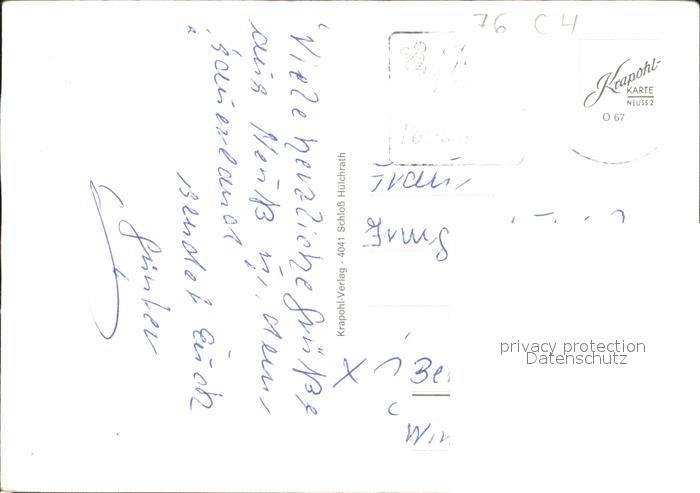 76 C 4
Krapohl-
KARTE
NEUSS 2
O 67
Viele herzliche Grüße
aus Neuß u. dem
"Sauerland"
sendet Euch
Günter
Krapohl-Verlag - 4041 Schloß Hülchrath
Frau
privacy protection
Datenschutz